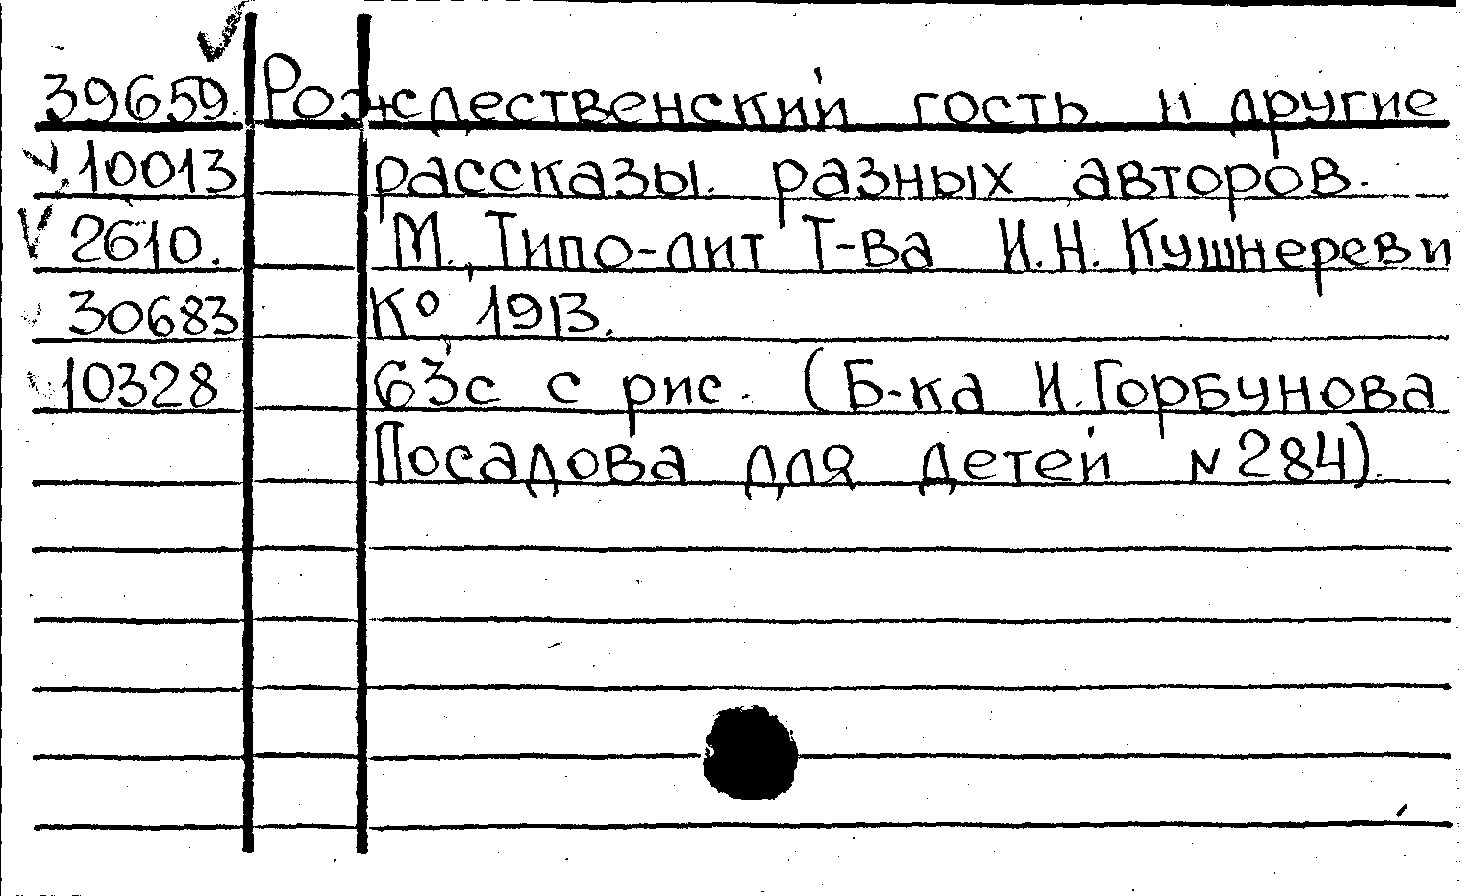 39659. Рождественский гость и другие
10013 рассказы разных авторов.
2610. М., Типо-лит Т-ва И.Н. Кушнереви
30683 К° 1913.
10328 63с с рис. (Б-ка И.Горбунова
Посадова для детей №284).